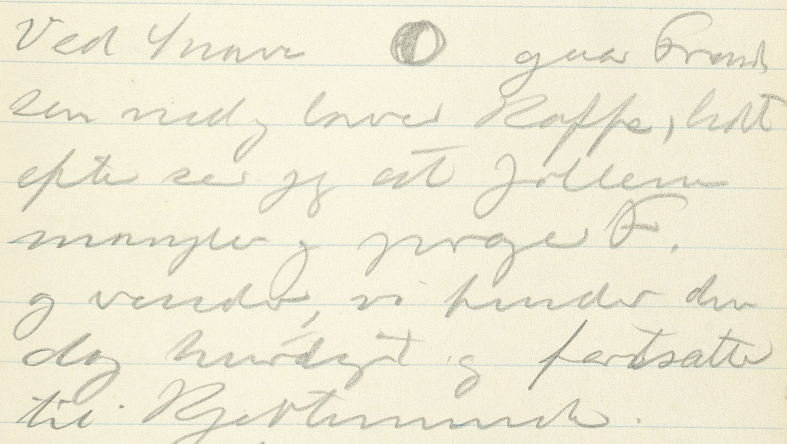 Ved Snave gaar Frand
sen ned og laver Kaffe, lidt
efter ser jeg at Jollen
mangler og prajer F.
og vender, vi finder den
dog hurtigt og fortsatte
til Kjerteminde.